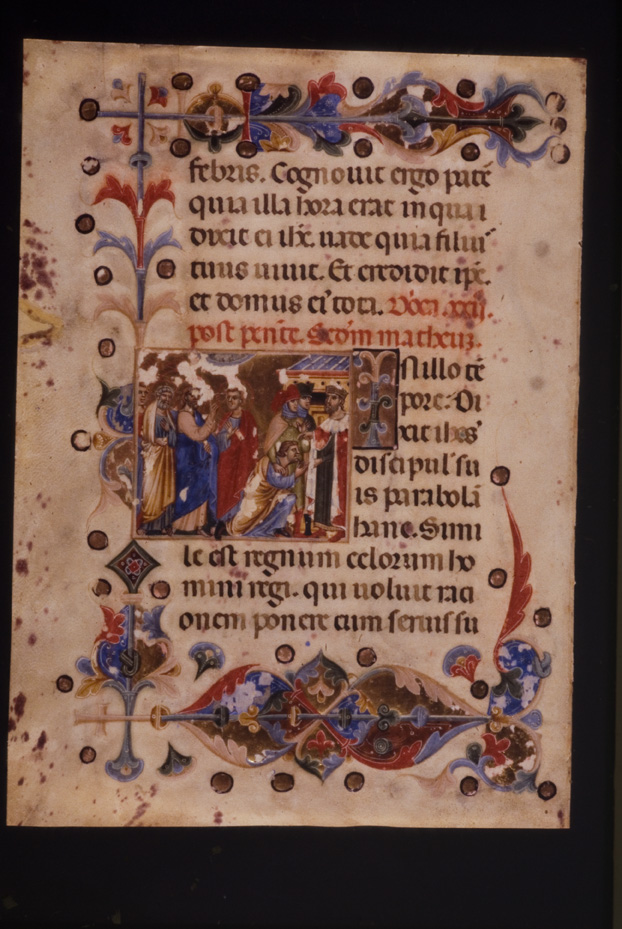 febris. Cognouit ergo pat̄e
quia illa hora erat in qua i
dixit ei ih̄c. uade quia filiu᷒
tuus uiuit. Et credidit ip̄e.
et domus ei᷒ tota. D̄o̅c̅a̅ .xxij.
post pente. Sed̄m matheuz.
In illo tē
pore: Di
xit ihes᷒
discipul᷒ su
is parabolā
hanc. Simi
le est regnum celorum ho
mini regi. qui uoluit raci
onem ponere cum seruis su